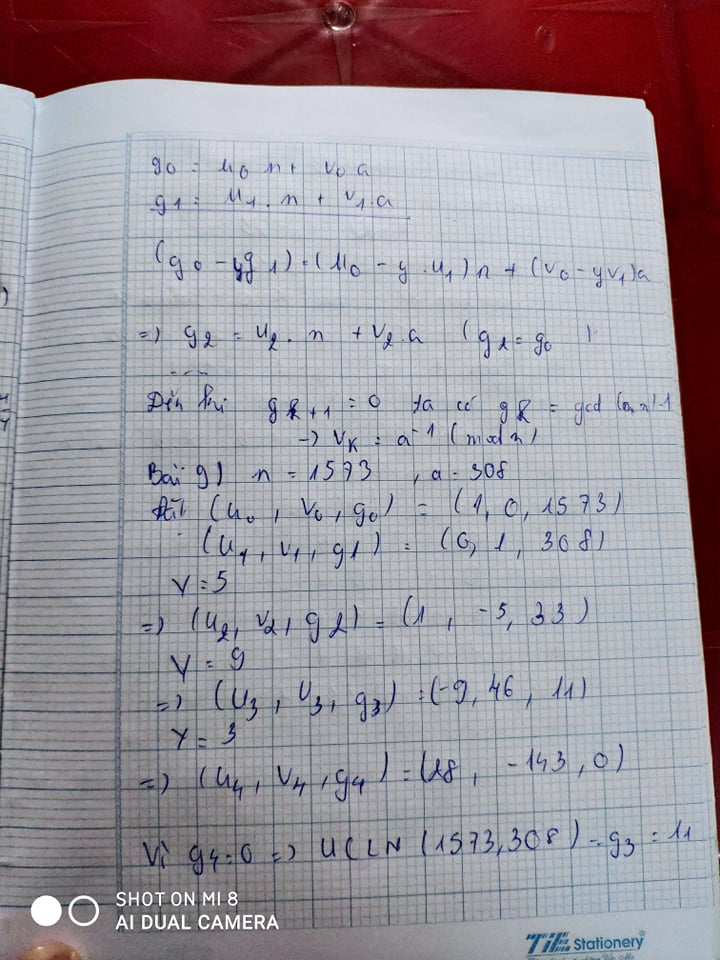 g0 = u0 n + v0 a
g1 = u1 . n + v1 . a
(g0 - yg1) = (u0 - y . u1) n + (v0 - yv1) a
=) g2 = u2 . n + v2 . a (g2 = g0 )
...
Đến khi gk+1 = 0 ta có gk = gcd (a, n) = 1
-) vk = a^-1 (mod n)
Bài 9) n = 1573 , a = 308
Đặt (u0, v0, g0) = (1, 0, 1573)
(u1, v1, g1) = (0, 1, 308)
y = 5
=) (u2, v2, g2) = (1, -5, 33)
y = 9
=) (u3, v3, g3) = (-9, 46, 11)
y = 3
=) (u4, v4, g4) = (28, -143, 0)
Vì g4 = 0 =) UCLN (1573, 308) = g3 = 11
SHOT ON MI 8
AI DUAL CAMERA
TiE Stationery